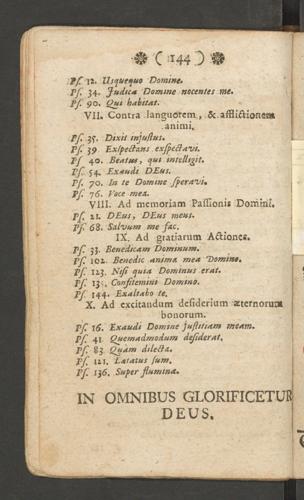 ( 144 )
Ps. 12. Usquequo Domine.
Ps. 34. Judica Domine nocentes me.
Ps. 90. Qui habitat.
VII. Contra languorem, & afflictionem
animi.
Ps. 35. Dixit injustus.
Ps. 39 Exspectans exspectavi.
Ps. 40. Beatus, qui intelligit.
Ps. 54. Exaudi DEus.
Ps. 70. In te Domine speravi.
Ps. 76. Voce mea.
VIII. Ad memoriam Passionis Domini.
Ps. 21. DEus, DEus meus.
Ps. 68. Salvum me fac.
IX. Ad gratiarum Actiones.
Ps. 33. Benedicam Dominum.
Ps. 102. Benedic anima mea Domino.
Ps. 123. Nisi quia Dominus erat.
Ps. Confitemini Domino.
Ps. 144. Exaltabo te.
X. Ad excitandum desiderium æternorum
bonorum.
Ps. 16. Exaudi Domine justitiam meam.
Ps. 41. Quemadmodum desiderat.
Ps. 83. Quàm dilecta.
Ps. 121. Lætatus sum.
Ps. 136. Super flumina.
IN OMNIBUS GLORIFICETUR
DEUS.